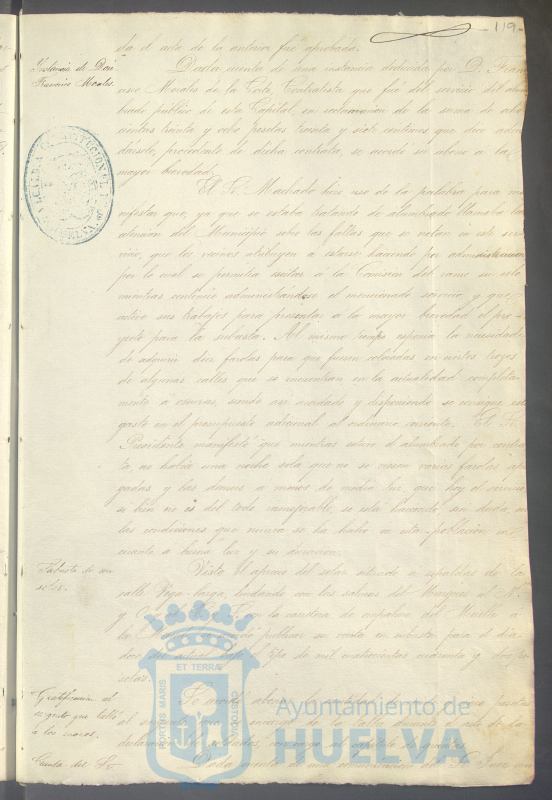 119
da el acta de la anterior fué aprobada.
Instancia de Don
Francisco Morales.
Dada cuenta de una instancia deducida por D. Fran-
cisco Morales de la Corte, Contratista que fué del servicio del alum-
brado público de esta Capital, en reclamacion de la suma de ocho-
cientas treinta y ocho pesetas treinta y siete centimos que dice adeu-
dársele, procedente de dicha contrata, se acordó su abono a la
mayor brevedad.
ALCALDIA CONSTITUCIONAL
HUELVA
El Sr. Machado hizo uso de la palabra para ma-
nifestar que, ya que se estaba tratando de alumbrado llamaba la
atencion del Municipio sobre las faltas que se notan en este ser-
vicio, que los vecinos atribuyen a estarse haciendo por administracion
por lo cual se permitia escitar á la Comision del ramo su celo
mientras continúe administrándose el mencionado servicio y que
active sus trabajos para presentar a la mayor brevedad el pro-
yecto para la subasta. Al mismo tiempo esponia la necesidad
de adquirir diez farolas para que fueran colocadas en ciertos trozos
de algunas calles que se encuentran en la actualidad completa-
mente á oscuras, siendo asi acordado y disponiendo se consigne este
gasto en el presupuesto adicional al ordinario corriente. El Sr.
Presidente manifestó que mientras estuvo el alumbrado por contra-
ta no habia una noche sola que no se viesen varias farolas apa-
gadas y las demas a menos de media luz, que hoy el servicio
si bien no es del todo inmejorable, se está haciendo sin duda, en
las condiciones que nunca se ha hecho en esta poblacion en
cuanto a buena luz y su duracion.
Subasta de un
solar.
Visto el aprecio del solar situado a espaldas de la
calle Vega-larga, lindando con los solares del Marques
y la carretera de empalme del Muelle
publicar su venta en subasta para el dia
tipo de mil cuatrocientas cuarenta y
setas.
Gratificacion al
sargento que talló
a los mozos.
pesetas
al sargento encargado de la talla durante el acto de la
declaracion de soldados, con cargo al capitulo de quintas.
Cuenta del Sr.
Dada cuenta de una comunicacion del Sr. Juez
PORTUS MARIS
ET TERRAE
CUSTODIA
Ayuntamiento de
HUELVA